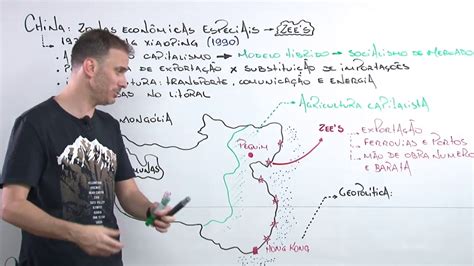 CHINA: ZONAS ECONÔMICAS ESPECIAIS → ZEE'S
XIAOPING (1990)
CAPITALISMO → MODELO HÍBRIDO → SOCIALISMO DE MERCADO
DE EXPORTAÇÃO X SUBSTITUIÇÃO DE IMPORTAÇÕES
TRANSPORTE, COMUNICAÇÃO E ENERGIA
NO LITORAL
AGRICULTURA CAPITALISTA
MONGÓLIA
PEQUIM
ZEE'S
EXPORTAÇÃO
FERROVIAS E PORTOS
MÃO DE OBRA NUMERO
E BARATA
COMUNAS
GEOPOLÍTICA:
HONG KONG